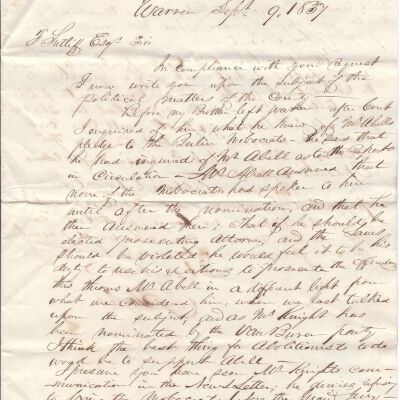 Warren Sept. 9, 1837
F Sutliff Esqr Sir
In compliance with your request
I now write you upon the subject of the
political matters of the County
Before my Brother left Warren after Court
I enquired of him what he knew of Mr Abell's
pledge to the Berlin Mobocrats - he said that
he had inquired of Mr Abell as to the reports
in Circulation - Mr Abell Answered that
none of the Mobocrats had spoken to him
until after the nomination, and that he
then Answered them; That if he should be
elected prosecuting Attorney, and the Laws
should be violated he would feel it to be his
duty to use his exertions to prosecute the offenders
this throws Mr Abell in a different light from
what we considered him, when we last talked
upon the subject, and as Mr Knight has
been nominated by the Van Buren party
I think the best thing for Abolitionists to do
would be to support Abell
I presume you have seen Mr Knights com-
munication in the News Letter; he denies refusing
to bring the Mobocrats before the Grand Jury -